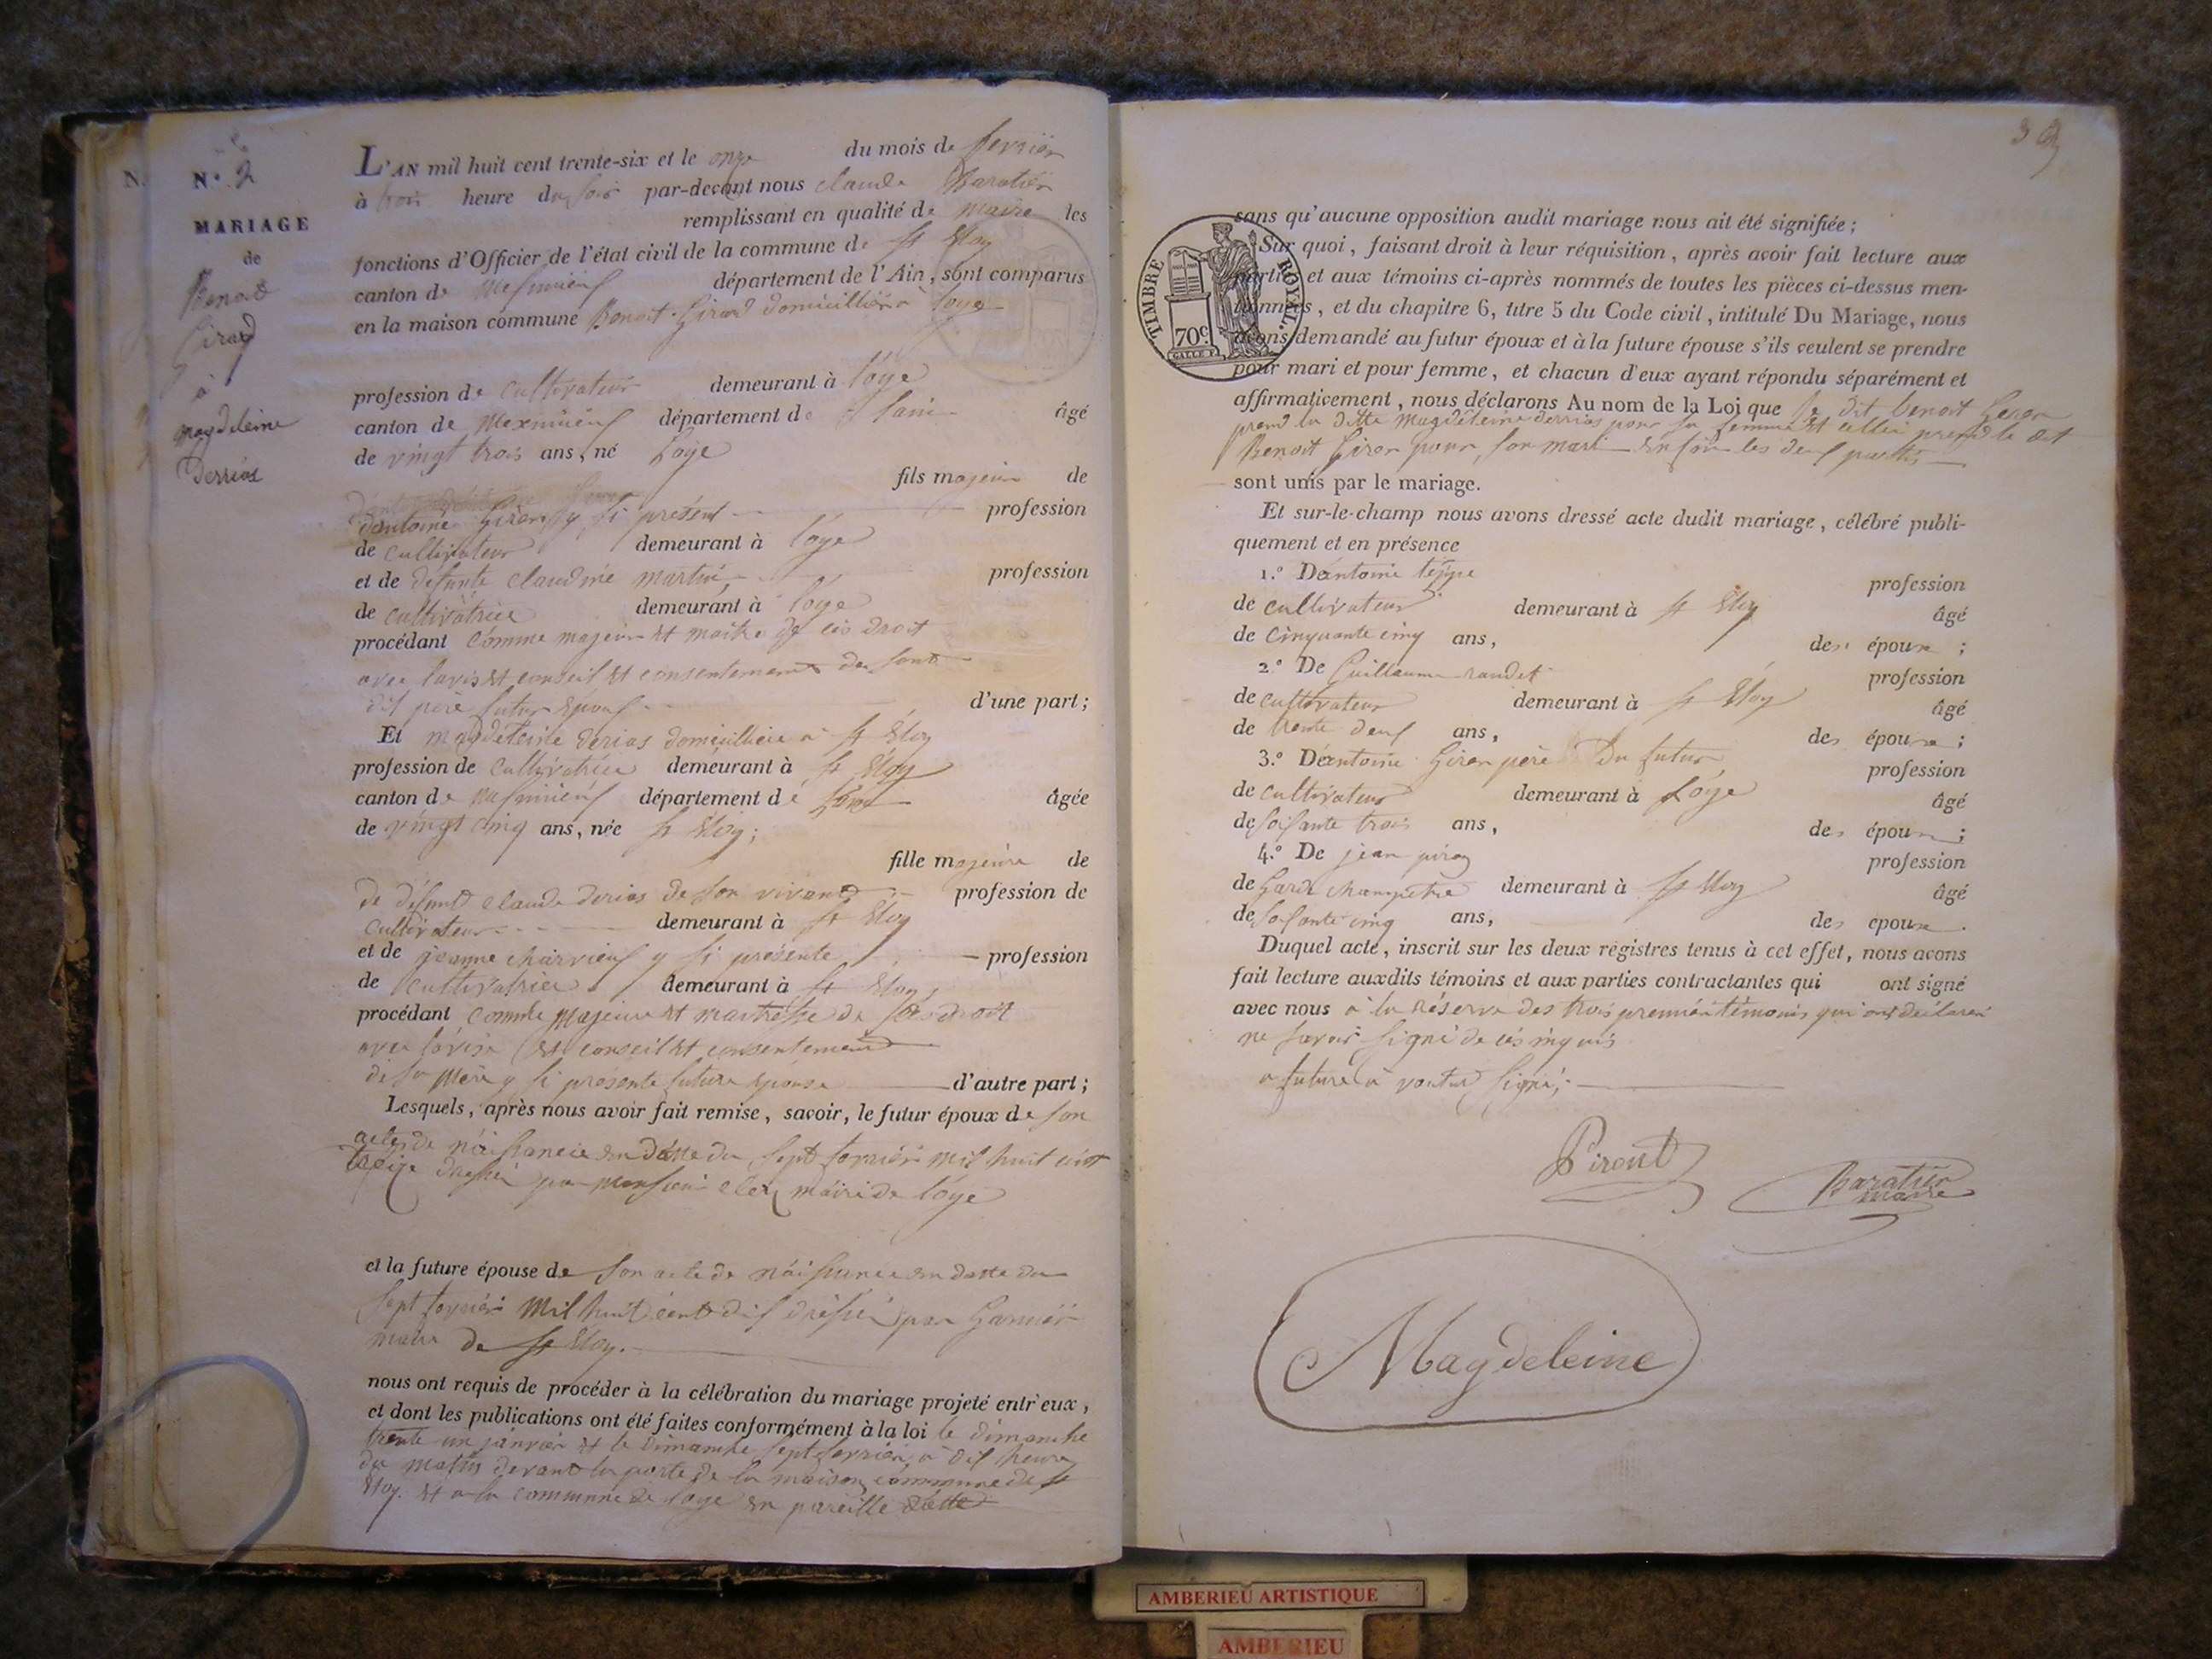 N.
N.º 2
MARIAGE
de
Benoit
Girard
à
magdeleine
Derrias
L'AN mil huit cent trente-six et le onze du mois de fevrier
à trois heure du soir par-devant nous claude Baratier
remplissant en qualité de maire les
fonctions d'Officier de l'état civil de la commune de St Eloy
canton de Mesimieuf département de l'Ain, sont comparus
en la maison commune Benoit Girard domicillier à loye
profession de cultivateur demeurant à l'oye
canton de Mexmieuf département de lain âgé
de vingt trois ans, né Loye
fils majeur de
d'antoine Giron y si présent profession
de cultivateur demeurant à l'oye
et de défunte claudine martin profession
de cultivatrice demeurant à l'oye
procédant comme majeur et maitre de ces droit
avec lavis et conseil et consentement de sont
dit père futur épouf d'une part;
Et magdeleine Derias domicilliée à St Eloy
profession de cultivatrice demeurant à St Eloy
canton de département de âgée
de vingt cinq ans, née St Eloy;
fille majeure de
de défunt claude derias de son vivant profession de
cultivateur demeurant à St Eloy
et de jeanne charvieuf y si présente profession
de cultivatrice demeurant à St Eloy
procédant comme majeure et maitresse de ses droit
avec lavis et conseil et consentement
de sa mère y si présente future épouse d'autre part;
Lesquels, après nous avoir fait remise, savoir, le futur époux de son
acte de naissance en datte du sept fevrier mil huit cent
treize dressé par monsieur clerc maire de l'oye
et la future épouse de son acte de naissance en datte du
sept fevrier mil huit cent dif dressé par Garnier
maire de St Eloy.
nous ont requis de procéder à la célébration du mariage projeté entr'eux,
et dont les publications ont été faites conformément à la loi le dimanche
trente un janvier et le dimanche sept fevrier, à dif heure
du matin devant la porte de la maison commune de St
Eloy. et a la commune de loye en pareille datte
39
TIMBRE ROYAL
70 c.
sans qu'aucune opposition audit mariage nous ait été signifiée;
Sur quoi, faisant droit à leur réquisition, après avoir fait lecture aux
parties et aux témoins ci-après nommés de toutes les pièces ci-dessus men-
tionnées, et du chapitre 6, titre 5 du Code civil, intitulé Du Mariage, nous
avons demandé au futur époux et à la future épouse s'ils veulent se prendre
pour mari et pour femme, et chacun d'eux ayant répondu séparément et
affirmativement, nous déclarons Au nom de la Loi que le dit benoit Geron
prend la ditte magdeleine derrias pour sa femme et celleci prend le dit
Benoit Giron pour son mari enfin les deuf partis
sont unis par le mariage.
Et sur-le-champ nous avons dressé acte dudit mariage, célébré publi-
quement et en présence
1.º D'antoine teppe profession
de cultivateur demeurant à St Eloy âgé
de cinquante cinq ans, des époux;
2.º De Guillaume randet profession
de cultivateur demeurant à St Eloy âgé
de trente deuf ans, des époux;
3.º D'antoine Giron père Du futur profession
de cultivateur demeurant à Loye âgé
de soisante trois ans, des époux;
4.º De jean profession
de Garde champetre demeurant à St Eloy âgé
de soisante cinq ans, des epoux.
Duquel acte, inscrit sur les deux registres tenus à cet effet, nous avons
fait lecture auxdits témoins et aux parties contractantes qui ont signé
avec nous a la réserve des trois premier témoins qui ont déclarer
ne savoir signé de ces
a future a signé;
Piront
Baratier
maire
Magdeleine
AMBERIEU ARTISTIQUE
AMBERIEU